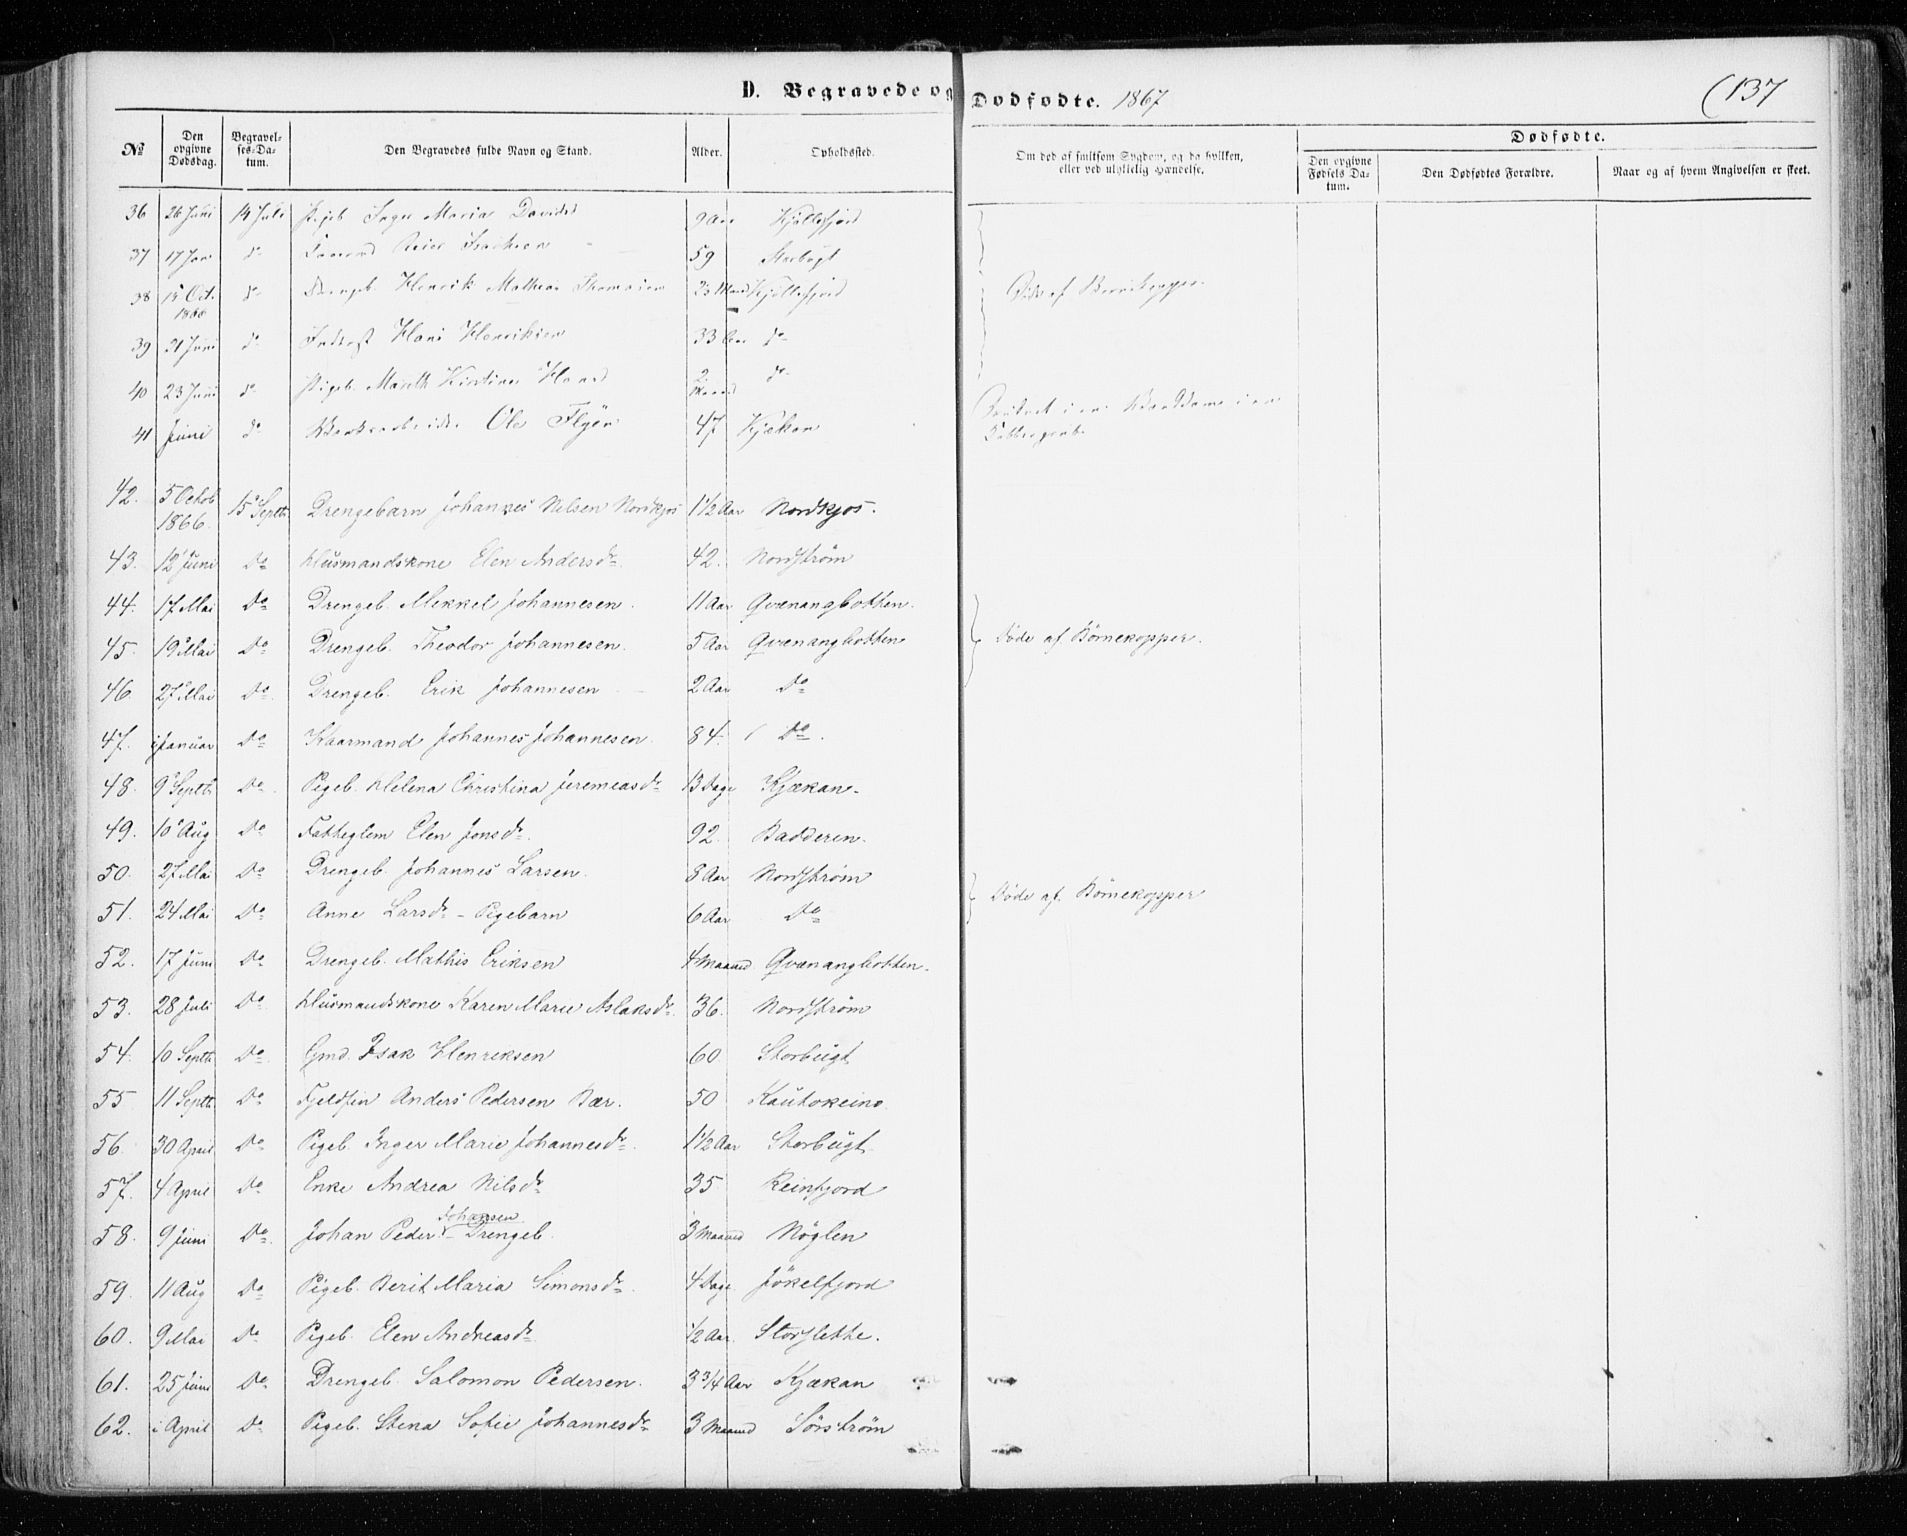 D. Begravede og Dødfødte. 1867
137
№ Den opgivne Dødsdag. Begravelses-Datum. Den Begravedes fulde Navn og Stand. Alder. Opholdssted. Om død af smitsom Sygdom, og da hvilken, eller ved ulykkelig Hændelse. Dødfødte.
Den opgivne Fødsels Datum. Den Dødfødtes Forældre. Naar og af hvem Angivelsen er skeet.
36 26 Juni 14 Juli Pigeb Inger Maria Davidsd 9 Aar Kjøllefjord
37 17 Jan d° Isaksen 59 Storbugt
38 15 Oct. 1866 d° Drengeb. Henrik Mathias Thomasen 23 Kjøllefjord
39 21 Juni d° Inderst Hans Henriksen 33 Aar d°
40 23 Juni d° Pigeb. Marith Kirstine Hansd d°
41 Juni d° Ole Flyen 47 Kjækan
42. 5 Octob 1866. 15 Septb. Drengebarn Johannes Nilsen Nordkjos 1½ Aar Nordkjos.
43. 12 Juni D° Husmandskone Elen Andersdr. 42. Nordstrøm
44. 17 Mai D° Drengeb. Mikkel Johannesen. 11 Aar Qvænangbotten.
45. 19 Mai D° Drengeb. Theodor Johannesen. 5 Aar Qvænangbotten Døde af Børnekopper.
46. 27 Mai D° Drengeb. Erik Johannesen 2 Aar D°
47. i Januar D° Kaarmand Johannes Johannesen. 84. D°.
48. 9 Septb. D° Pigeb. Helena Christina Jeremeasdr 13 Dage Kjækan.
49. 10 Aug D° Fattiglem Elen Jonsdr. 92. Badderen.
50. 27 Mai D° Drengeb. Johannes Larsen. 8 Aar Nordstrøm
51. 24 Mai D° Anne Larsdr - Pigebarn 6 Aar D° Døde af Børnekopper
52. 17 Juni D° Drengeb. Mathis Eriksen 4 Maaned Qvænangbotten.
53. 28 Juli D° Husmandskone Karen Marie Aslaksdr. 36. Nordstrøm
54. 10 Septb D° Gmd. Isak Henriksen 60 Storbugt
55 11 Septb. D° Fjeldfin Anders Pedersen Bær. 50 Kautokeino.
56. 30 April D° Pigeb. Inger Marie Johannesdr. 1½ Aar Storbugt.
57. 4 April D° Enke Andrea Nilsdr 35 Reinfjord
58. 9 Juni D° Johan Peder Johansen - Drengeb. 3 Maaned Nøglen
59. 11 Aug D° Pigeb. Berit Maria Simonsdr. 4 Dage. Jøkelfjord
60. 9 Mai D° Pigeb. Elen Andreasdr ½ Aar. Storslette.
61. 25 Juni D° Drengeb. Salomon Pedersen. 3 3/4 Aar Kjækan
62. i April D° Pigeb. Stena Sofie Johannesdr 3 Maaned Sørstrøm